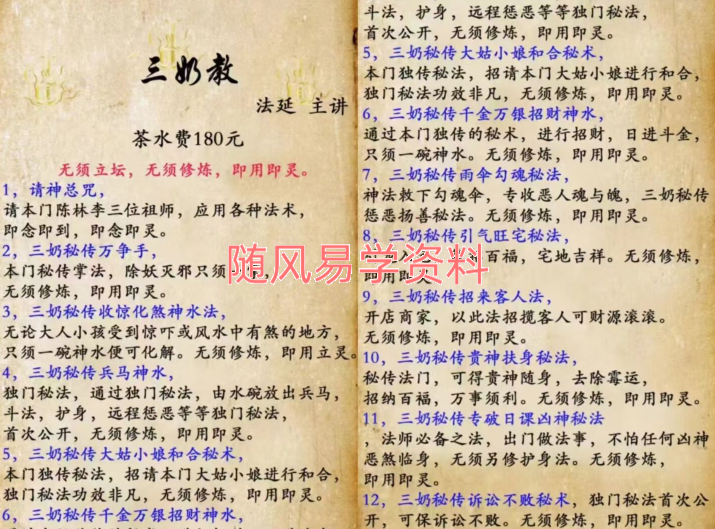 三奶教
法延 主讲
茶水费180元
无须立坛，无须修炼，即用即灵。
1，请神总咒，
请本门陈林李三位祖师，应用各种法术，
即念即到，即念即灵。
2，三奶秘传万争手，
本门秘传掌法，除妖灭邪只须一
无须修炼，即用即灵。
3，三奶秘传收惊化煞神水法，
无论大人小孩受到惊吓或风水中有煞的地方，
只须一碗神水便可化解。无须修炼，即用立灵。
4，三奶秘传兵马神水，
独门秘法，通过独门秘法，由水碗放出兵马，
斗法，护身，远程惩恶等等独门秘法，
首次公开，无须修炼，即用即灵。
5，三奶秘传大姑小娘和合秘术，
本门独传秘法，招请本门大姑小娘进行和合，
独门秘法功效非凡，无须修炼，即用即灵。
6，三奶秘传千金万银招财神水，
斗法，护身，远程惩恶等等独门秘法，
首次公开，无须修炼，即用即灵。
5，三奶秘传大姑小娘和合秘术，
本门独传秘法，招请本门大姑小娘进行和合，
独门秘法功效非凡，无须修炼，即用即灵。
6，三奶秘传千金万银招财神水，
通过本门独传的秘术，进行招财，日进斗金，
只须一碗神水。无须修炼，即用即灵。
7，三奶秘传雨伞勾魂秘法，
神法敕下勾魂伞，专收恶人魂与魄，三奶秘传
惩恶扬善秘法。无须修炼，即用即灵。
8，三奶秘传引气旺宅秘法，
百福，宅地吉祥。无须修炼，
即用即灵。
9，三奶秘传招来客人法，
开店商家，以此法招揽客人可财源滚滚。
无须修炼，即用即灵。
10，三奶秘传贵神扶身秘法，
秘传法门，可得贵神随身，去除霉运，
招纳百福，万事须利。无须修炼，即用即灵。
11，三奶秘传专破日课凶神秘法
，法师必备之法，出门做法事，不怕任何凶神
恶煞临身，无须另修护身法。无须修炼，
即用即灵。
12，三奶秘传诉讼不败秘术，独门秘法首次公
开，可保诉讼不败。无须修炼，即用即灵。
随风易学资料